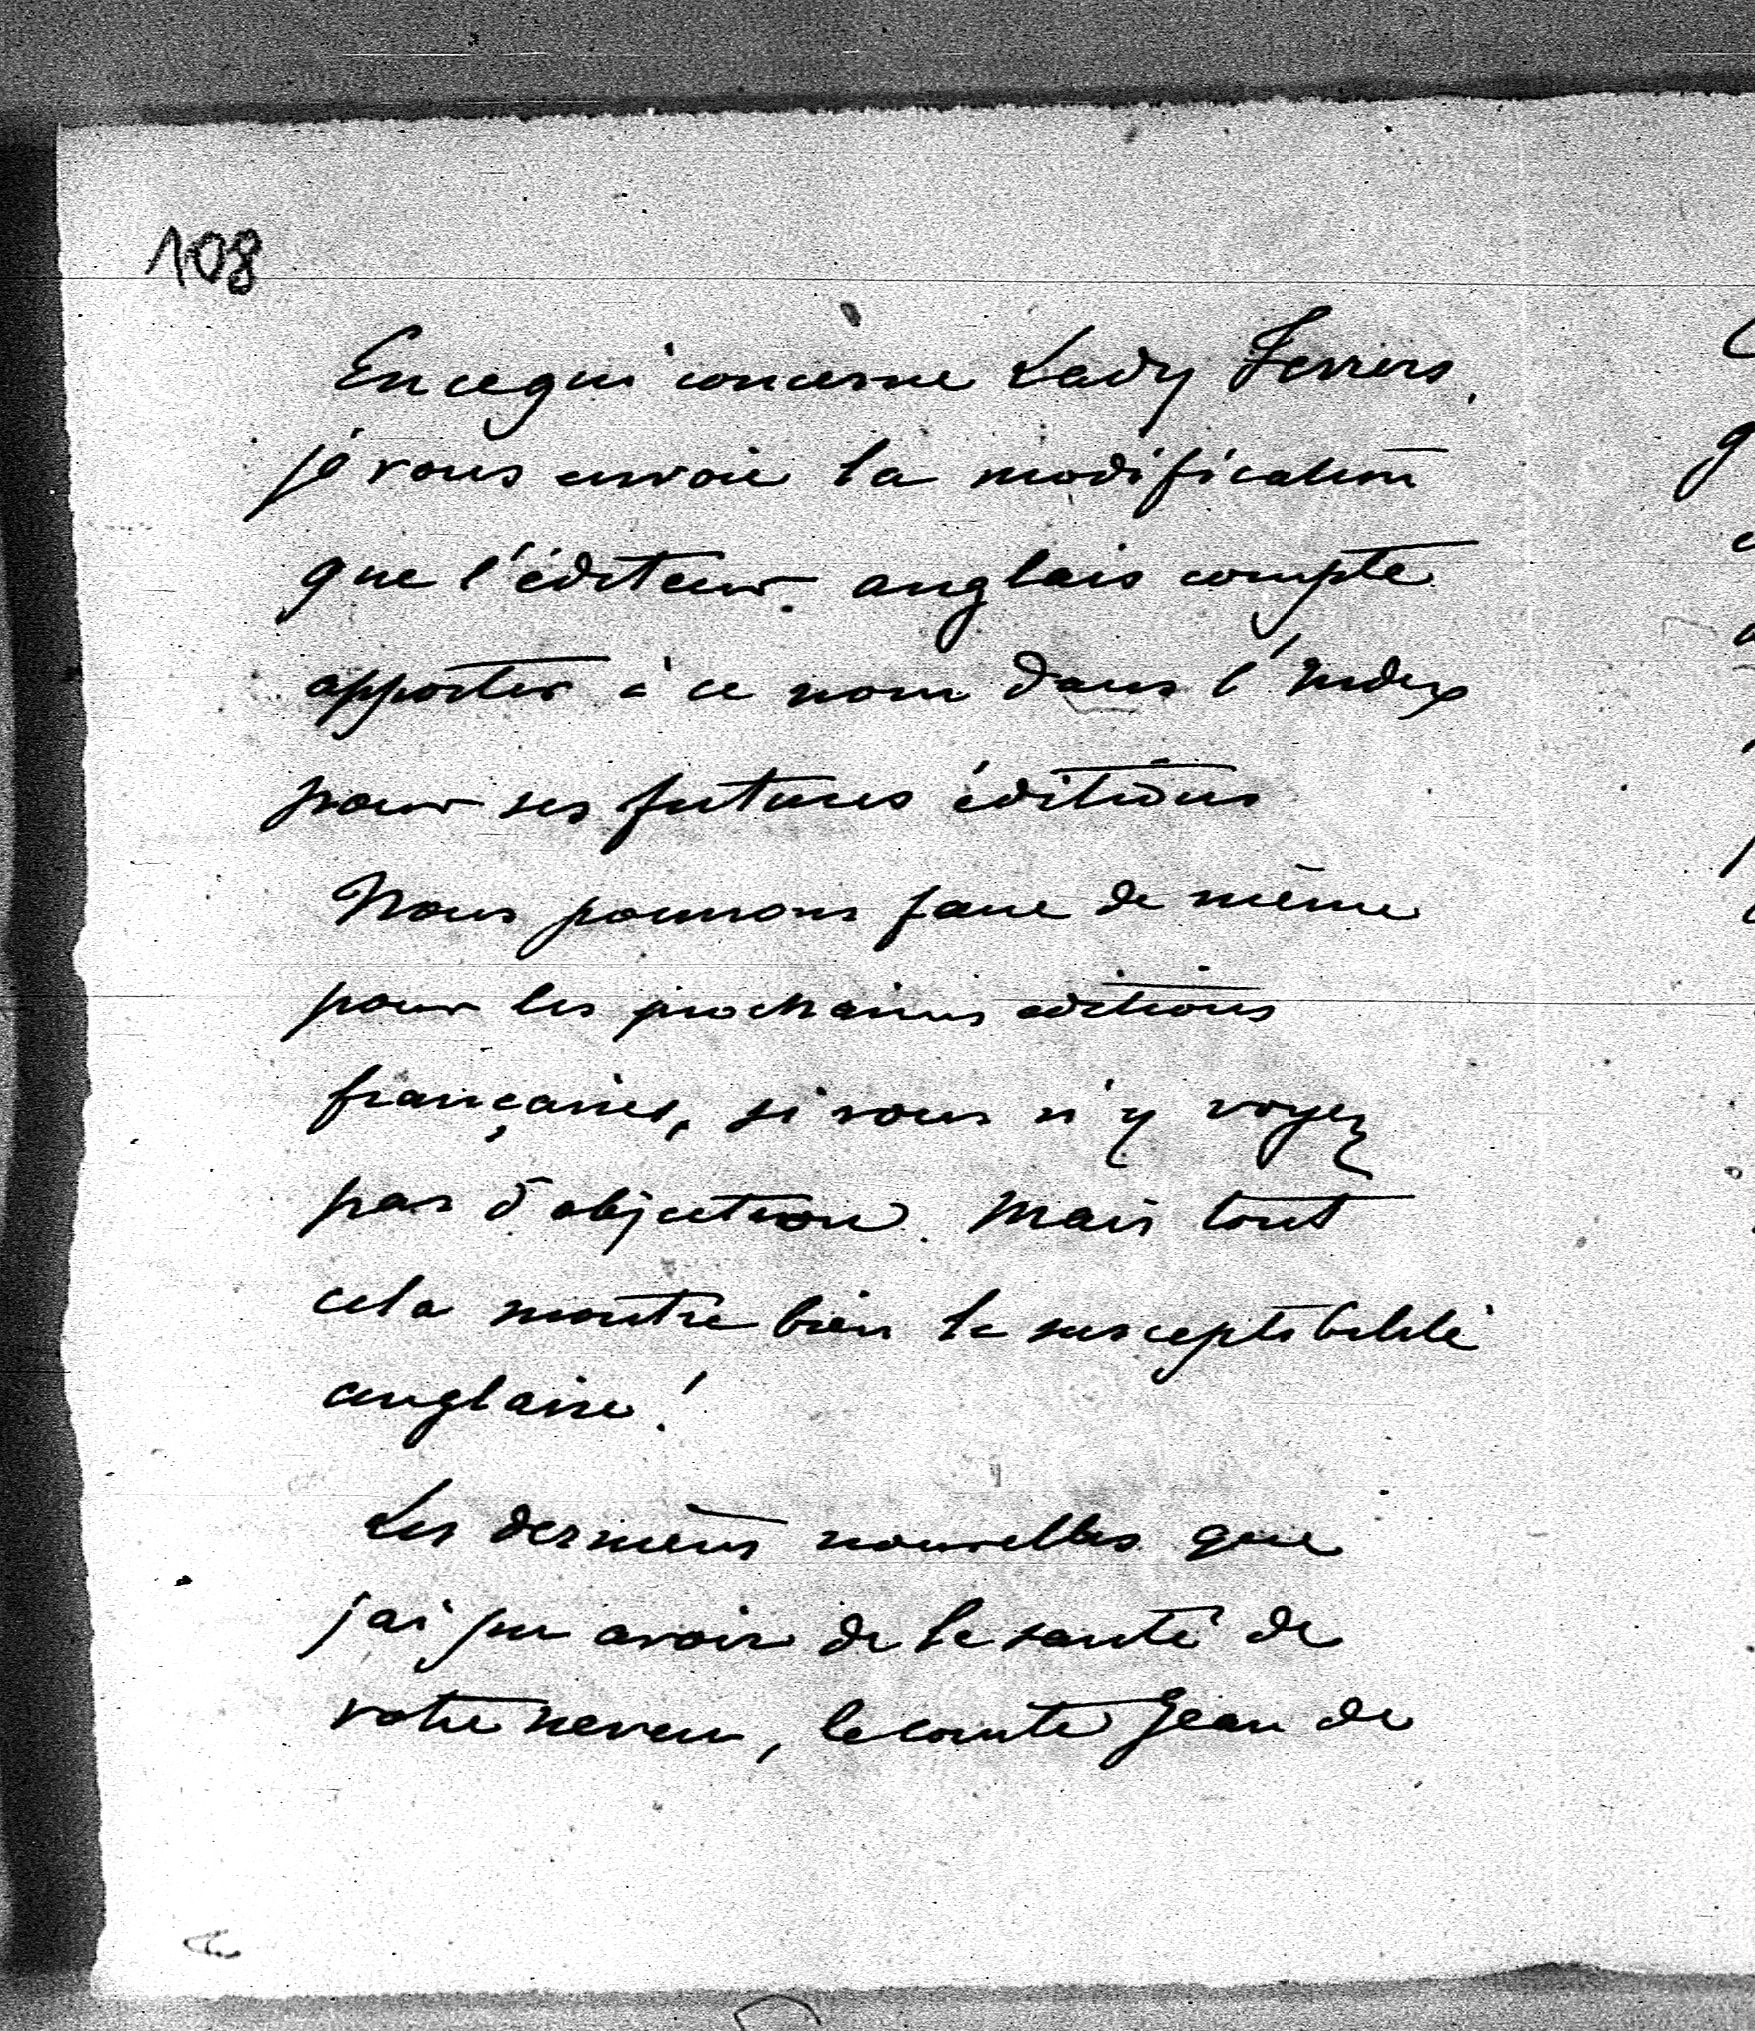 108
En ce qui concerne Lady Ferrers,
je vous envoie la modification
que l'éditeur anglais compte
apporter à ce nom dans l'Index
pour ses futures éditions
Nous pourrons faire de même
pour les prochaines éditions
françaises, si vous n'y voyez
pas d'objection. Mais tout
cela montre bien la susceptibilité
anglaise !
Les dernières nouvelles que
j'ai pu avoir de la santé de
votre neveu, le comte Jean de